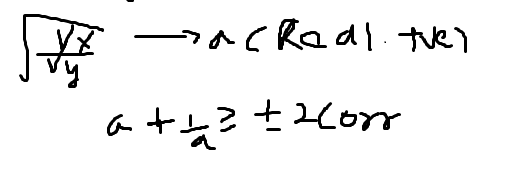 √(√x/√y) → a (Real +ve)
a + 1/a ≥ ± 2 (or